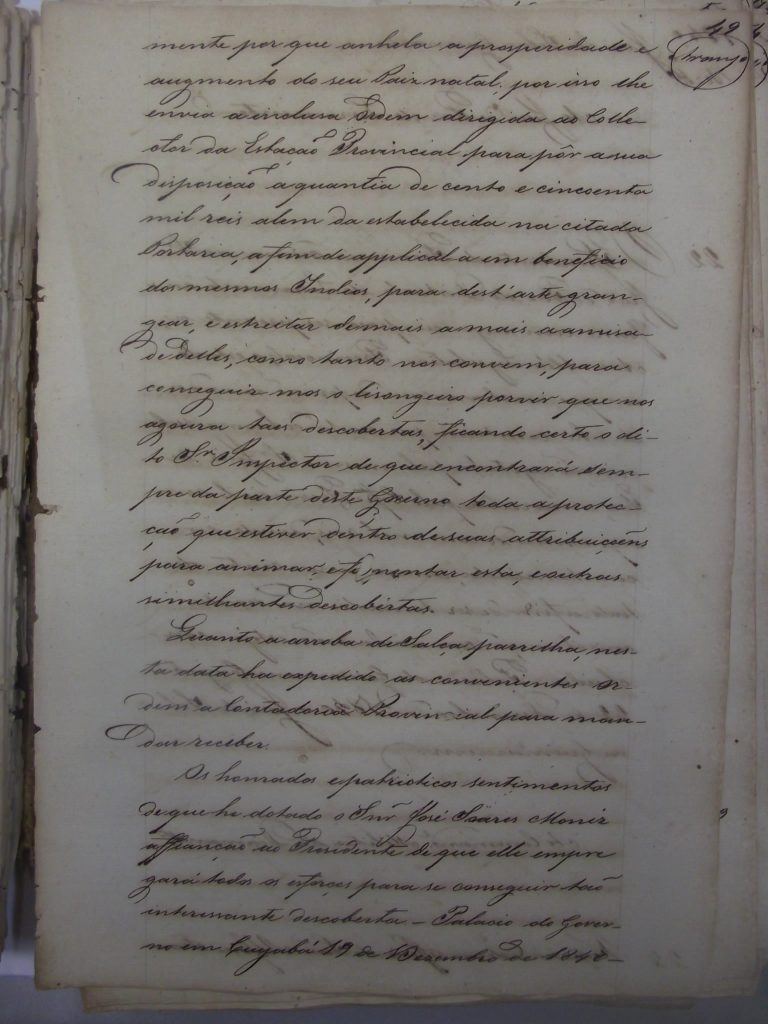 49
Araujo
mente por que anhela a prosperidade e
augmento do seu Paiz natal, por isso lhe
envia a inclusa Ordem dirigida ao Colle-
ctor da Estacão Provincial para pôr a sua
disposição a quantia de cento e cincoenta
mil reis alem da estabelecida na citada
Portaria, a fim de applical-a em beneficio
dos mesmos Indios, para dest'arte gran-
gear, e estreitar de mais a mais a amisa-
de delles, como tanto nos convem, para
conseguir mos o lisongeiro porvir que nos
agoura taes descobertas, ficando certo o di-
to Sr. Inspector de que encontrará sem-
pre da parte deste Governo toda a protec-
cão que estiver dentro de suas attribuiçoens
para animar, e fomentar esta, e outras
similhantes descobertas.
Quanto a arroba de Salça parrilha, nes-
ta data ha expedido as convenientes or-
dens a Contadoria Provincial para man-
dar receber.
Os honrados e patrioticos sentimentos
de que he dotado o Snr José Soares Moniz
affiancão ao Presidente de que elle empre
gará todos os esforços para se conseguir tão
interessante descoberta – Palacio do Gover-
no em Cuyabá 19 de Dezembro de 1848 –